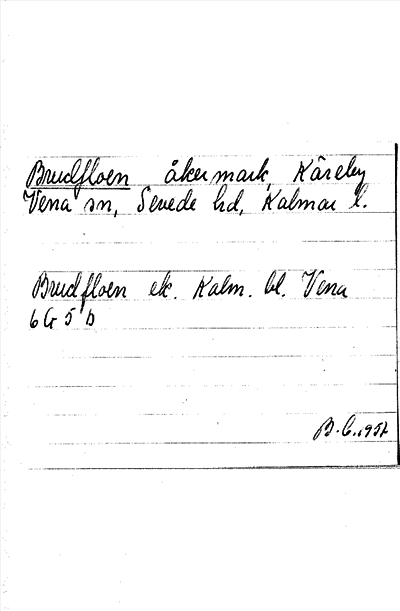 Brudfloen åkermark, Kåreby
Vena sn, Sevede hd, Kalmar l.
Brudfloen ek. Kalm. bl. Vena
6 G 5 b
B.C. 1957